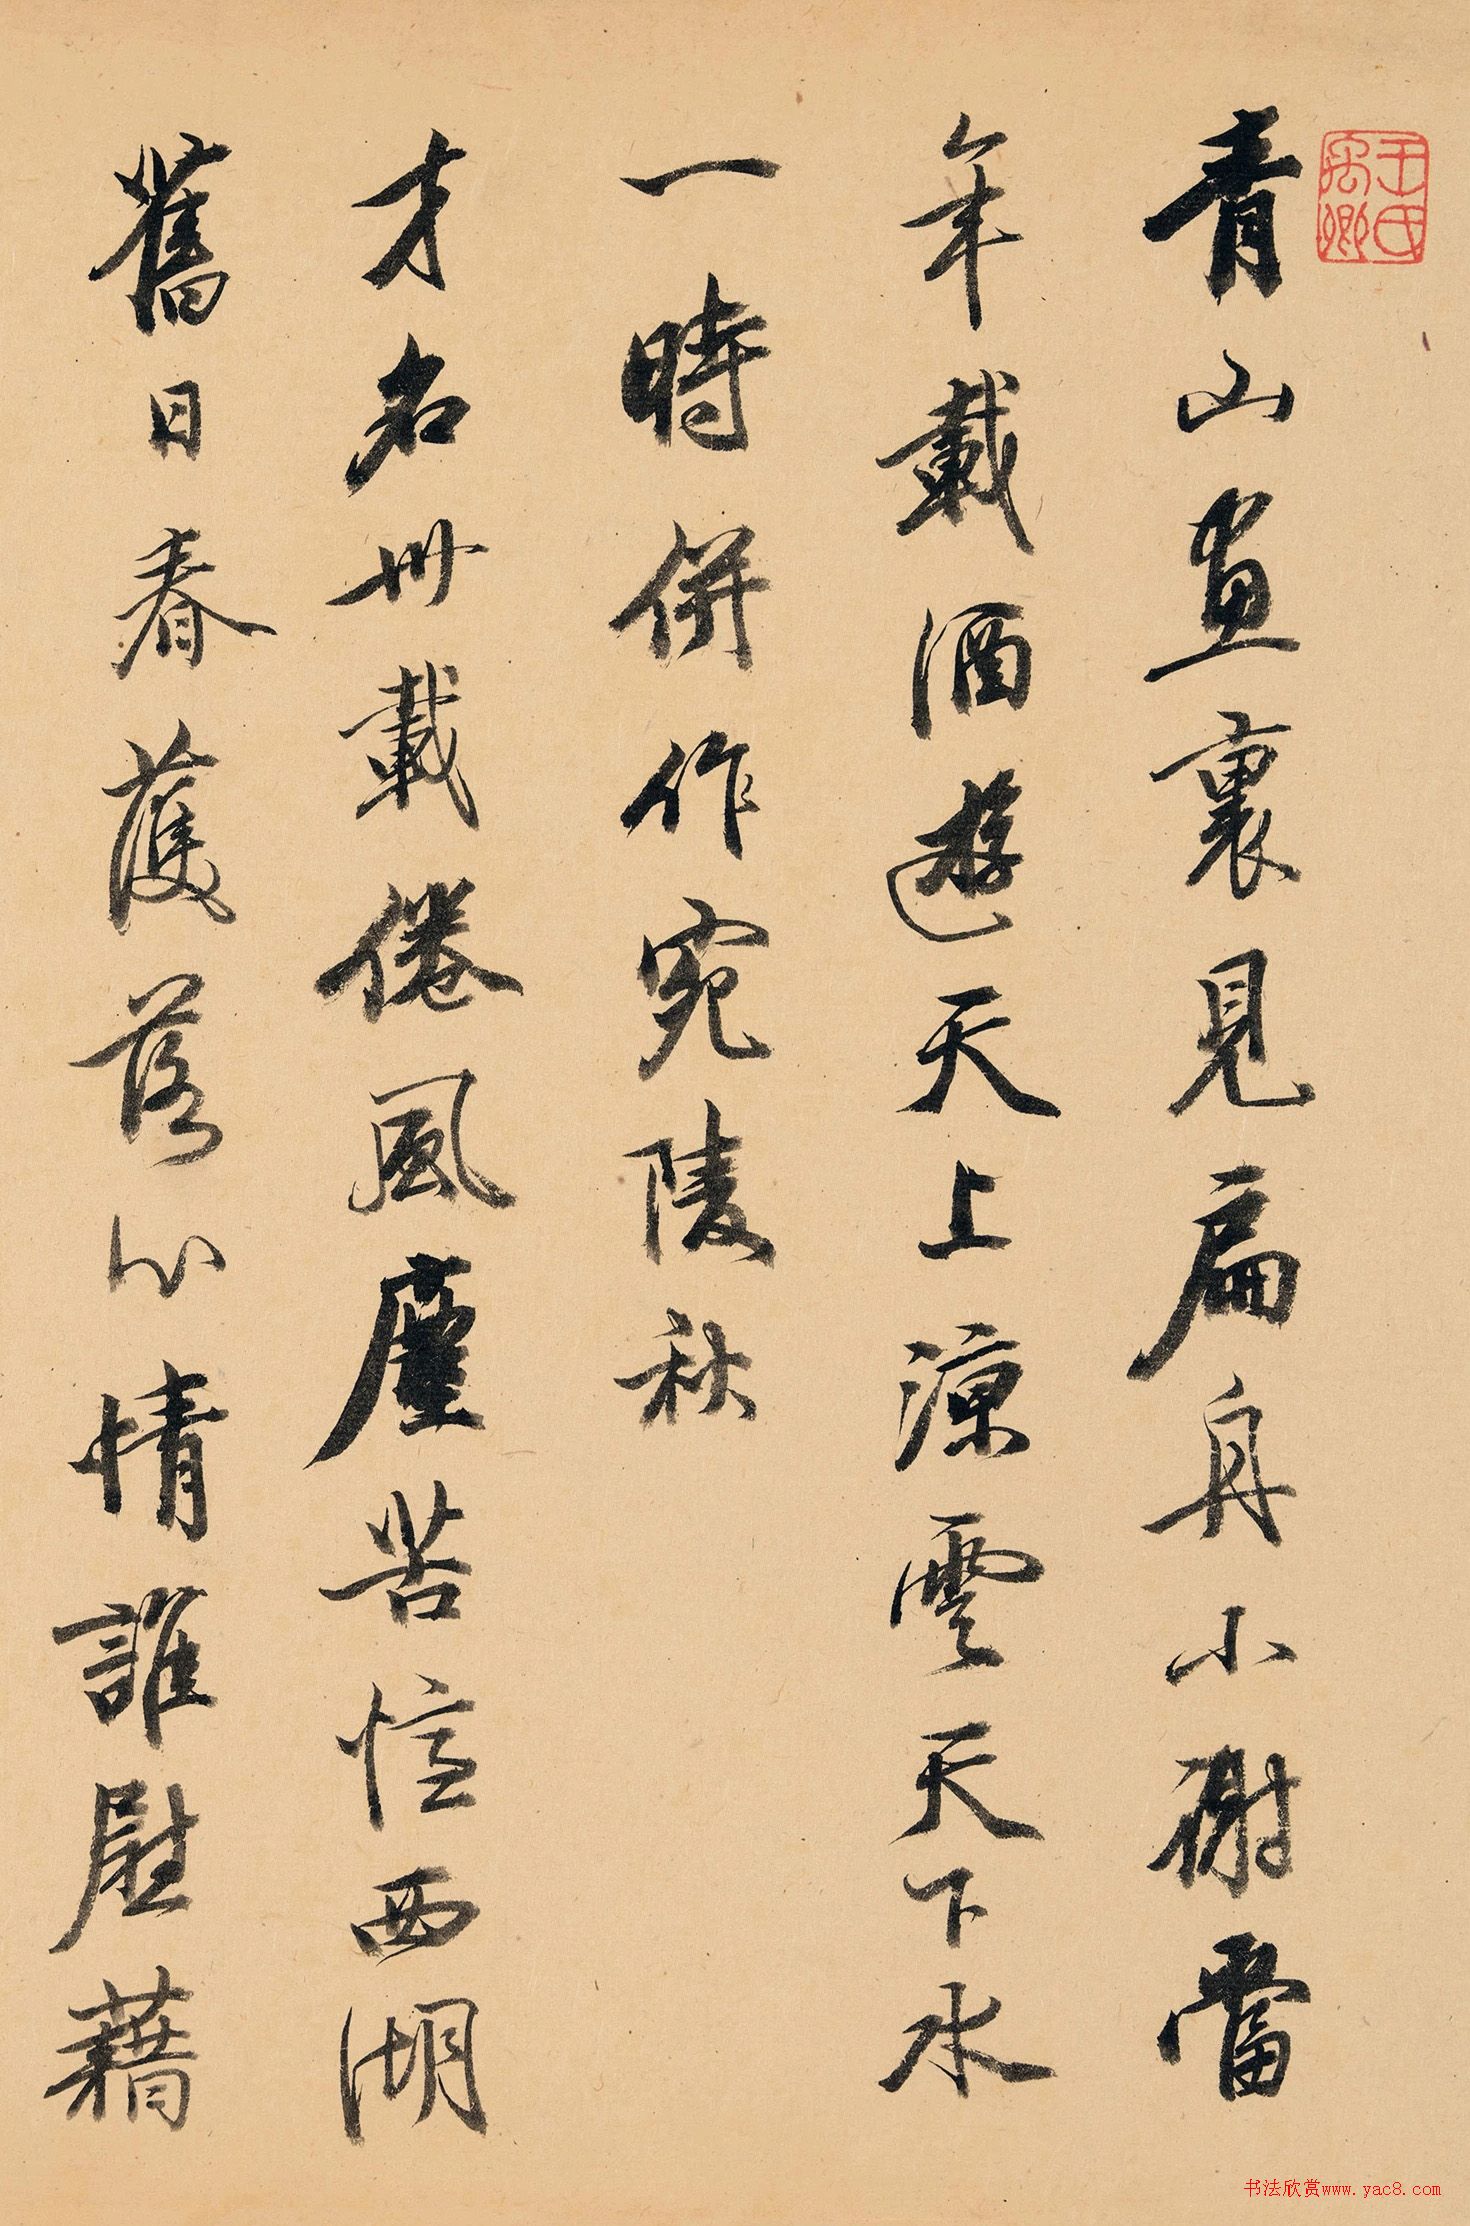 青山畫裏見扁舟小謝當
年載酒遊天上涼雲天下水
一時併作宛陵秋
才名卅載倦風塵苦憶西湖
舊日春濩落心情誰慰藉
王氏禹卿
书法欣赏www.yac8.com